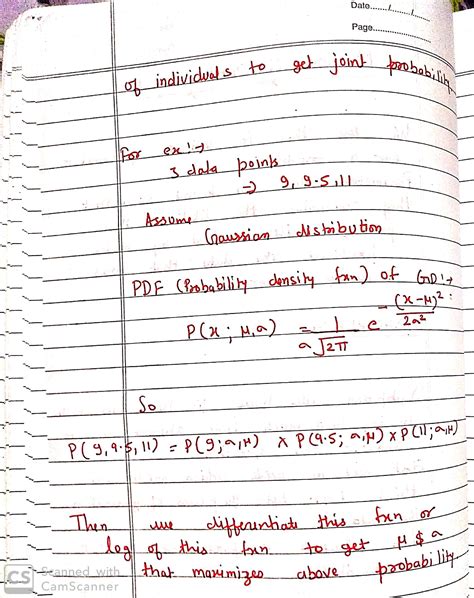 Date....../....../......
Page..................
of individuals to get joint probability
For ex :→
3 data points
→ 9, 9.5, 11
Assume
Gaussian distribution
PDF (Probability density fxn) of GD :→
P(x ; μ, a) = 1/(a√2π) e^-(x-μ)²/2a²
So
P(9, 9.5, 11) = P(9; a, μ) x P(9.5; a, μ) x P(11; a, μ)
Then we differentiate this fxn or
log of this fxn to get μ & a
that maximizes above probability
CS Scanned with
CamScanner